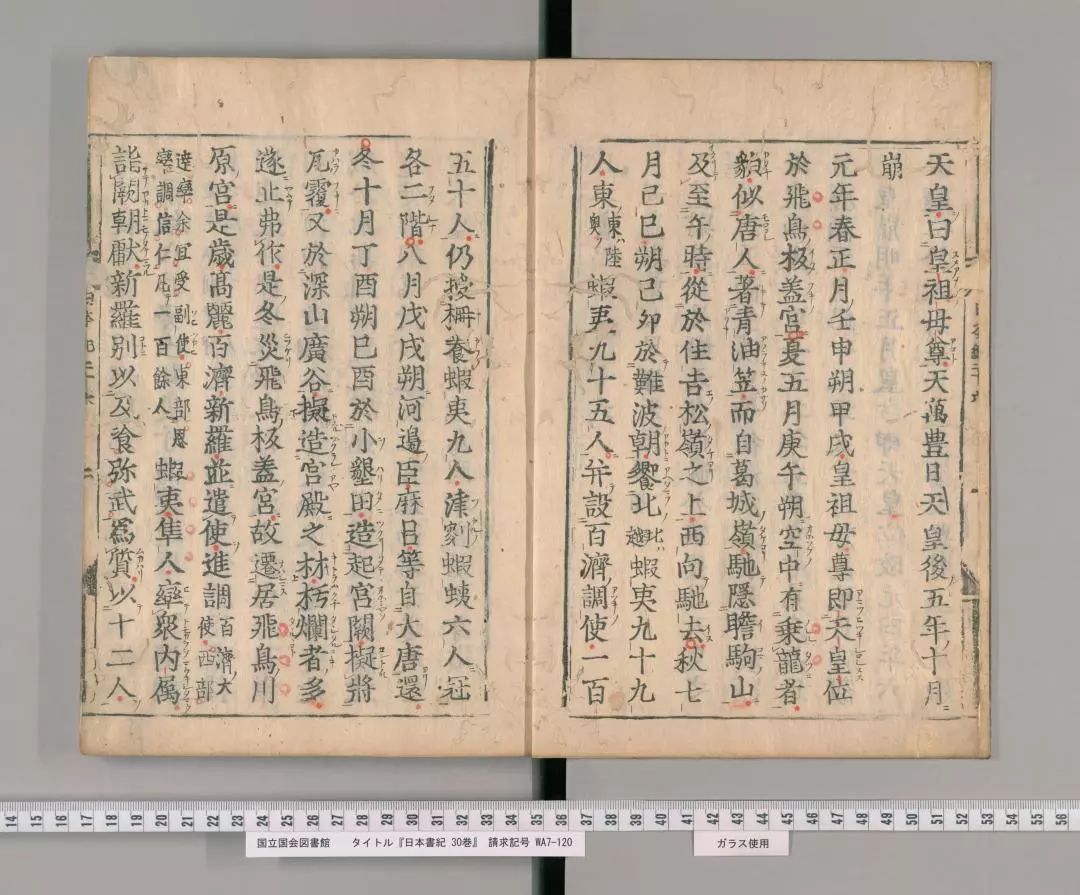 天皇曰皇祖母尊天萬豊日天皇後五年十月
崩
元年春正月壬申朔甲戌皇祖母尊即天皇位
於飛鳥板盖宮夏五月庚午朔空中有乗龍者
貌似唐人著青油笠而自葛城嶺馳隱膽駒山
及至午時從於住吉松嶺之上西向馳去秋七
月己巳朔己卯於難波朝饗北北越蝦夷九十九
人東東陸奥蝦夷九十五人并設百濟調使一百
五十人仍授柵養蝦夷九人津刻蝦蛦六人冠
各二階八月戊戌朔河邉臣麻呂等自大唐還
冬十月丁酉朔己酉於小墾田造起宮闕擬將
瓦覆又於深山廣谷擬造宮殿之材朽爛者多
遂止弗作是冬災飛鳥板盖宮故遷居飛鳥川
原宮是歳髙麗百濟新羅並遣使進調百濟大使西部
達率余宜受副使東部恩率調信仁凡一百餘人蝦夷隼人率衆内属
詣闕朝獻新羅別以及飡弥武為質以十二人
14 15 16 17 18 19 20 21 22 23 24 25 26 27 28 29 30 31 32 33 34 35 36 37 38 39 40 41 42 43 44 45 46 47 48 49 50 51 52 53 54 55 56
国立国会図書館 タイトル『日本書紀 30巻』 請求記号 WA7-120
ガラス使用